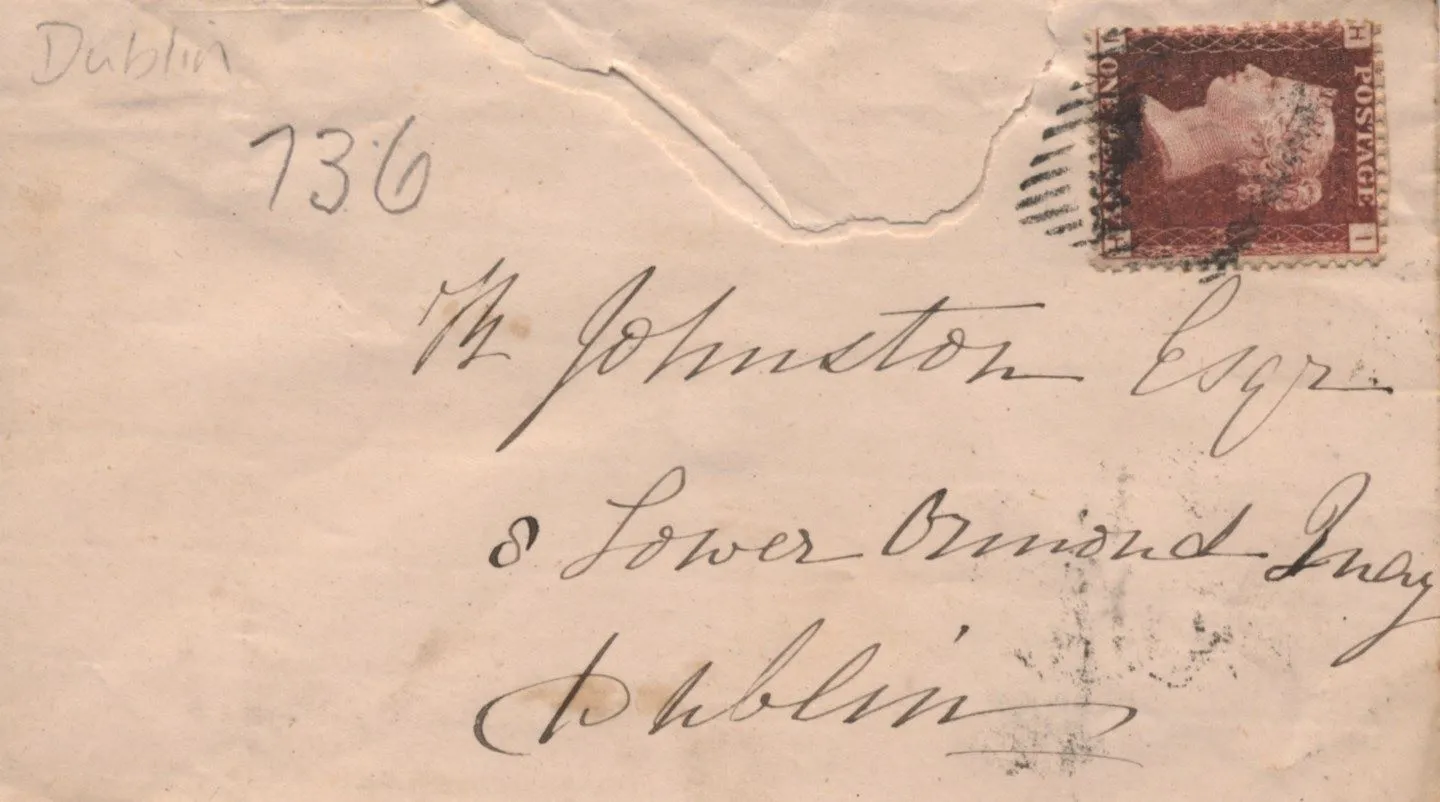 Dublin
136
POSTAGE
ONE PENNY
H I
I H
Johnston Esqr
8 Lower Ormond Quay
Dublin